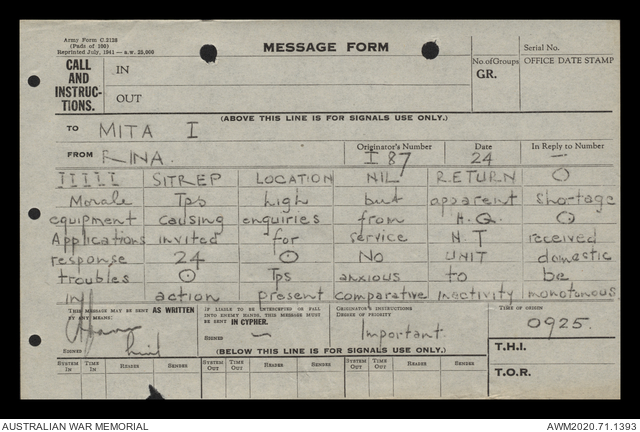 Army Form C.2128
(Pads of 100)
Reprinted July, 1941—s.w. 25,000
MESSAGE FORM
Serial No.
CALL AND INSTRUC-TIONS.
IN
OUT
No. of Groups
GR.
OFFICE DATE STAMP
(ABOVE THIS LINE IS FOR SIGNALS USE ONLY.)
TO MITA I
FROM RINA.
Originator's Number
I 87
Date
24
In Reply to Number
—
IIIII SITREP LOCATION NIL RETURN ⊙
Morale Tps high but apparent shortage
equipment causing enquiries from H.Q. ⊙
Applications invited for service N.T received
response 24 ⊙ No UNIT domestic
troubles ⊙ Tps anxious to be
in action present comparative inactivity monotonous
THIS MESSAGE MAY BE SENT AS WRITTEN BY ANY MEANS.
SIGNED
IF LIABLE TO BE INTERCEPTED OR FALL INTO ENEMY HANDS, THIS MESSAGE MUST BE SENT IN CYPHER.
SIGNED —
ORIGINATOR'S INSTRUCTIONS
DEGREE OF PRIORITY
Important.
TIME OF ORIGIN
0925.
(BELOW THIS LINE IS FOR SIGNALS USE ONLY.)
T.H.I.
T.O.R.
SYSTEM IN TIME IN READER SENDER SYSTEM OUT TIME OUT READER SENDER SYSTEM OUT TIME OUT READER SENDER
AUSTRALIAN WAR MEMORIAL
AWM2020.71.1393